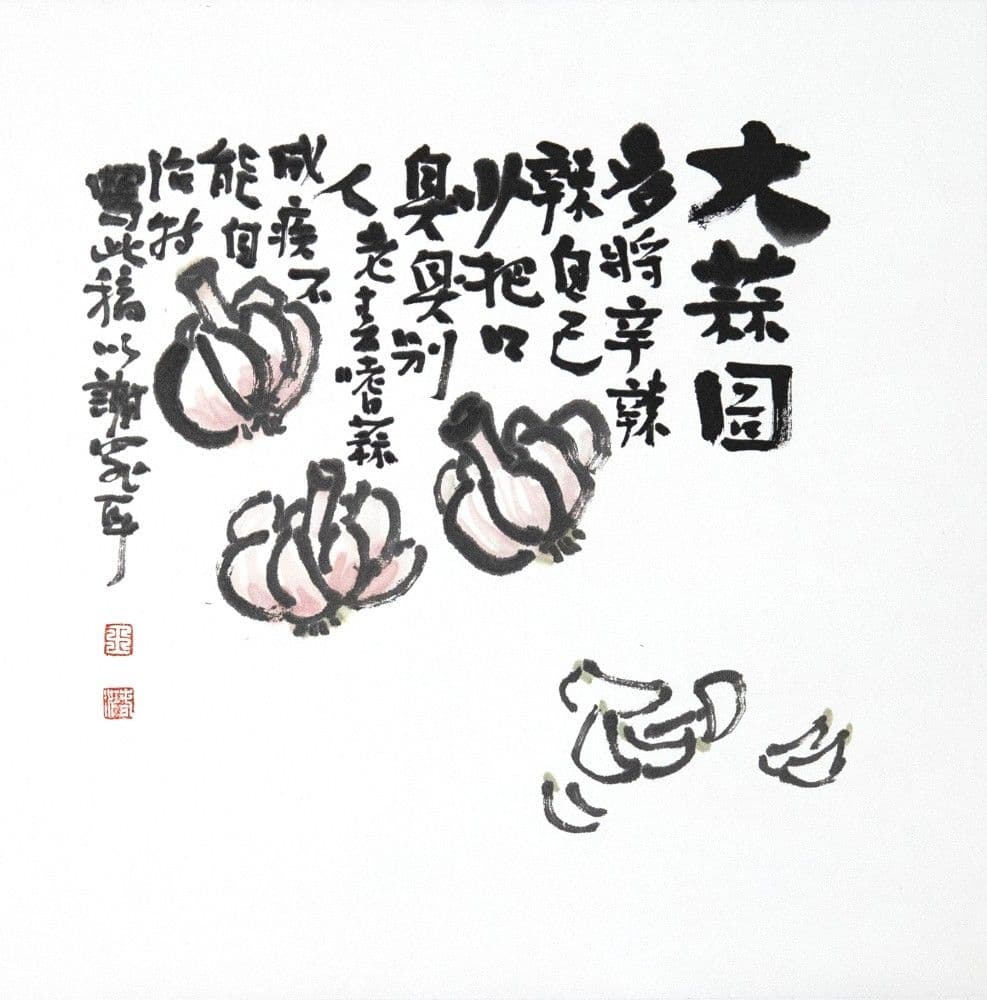 大蒜圖
多將辛辣
辣自己
少把口
臭臭别
人老夫嗜蒜
成疾不
能自
治特
寫此稿以謝